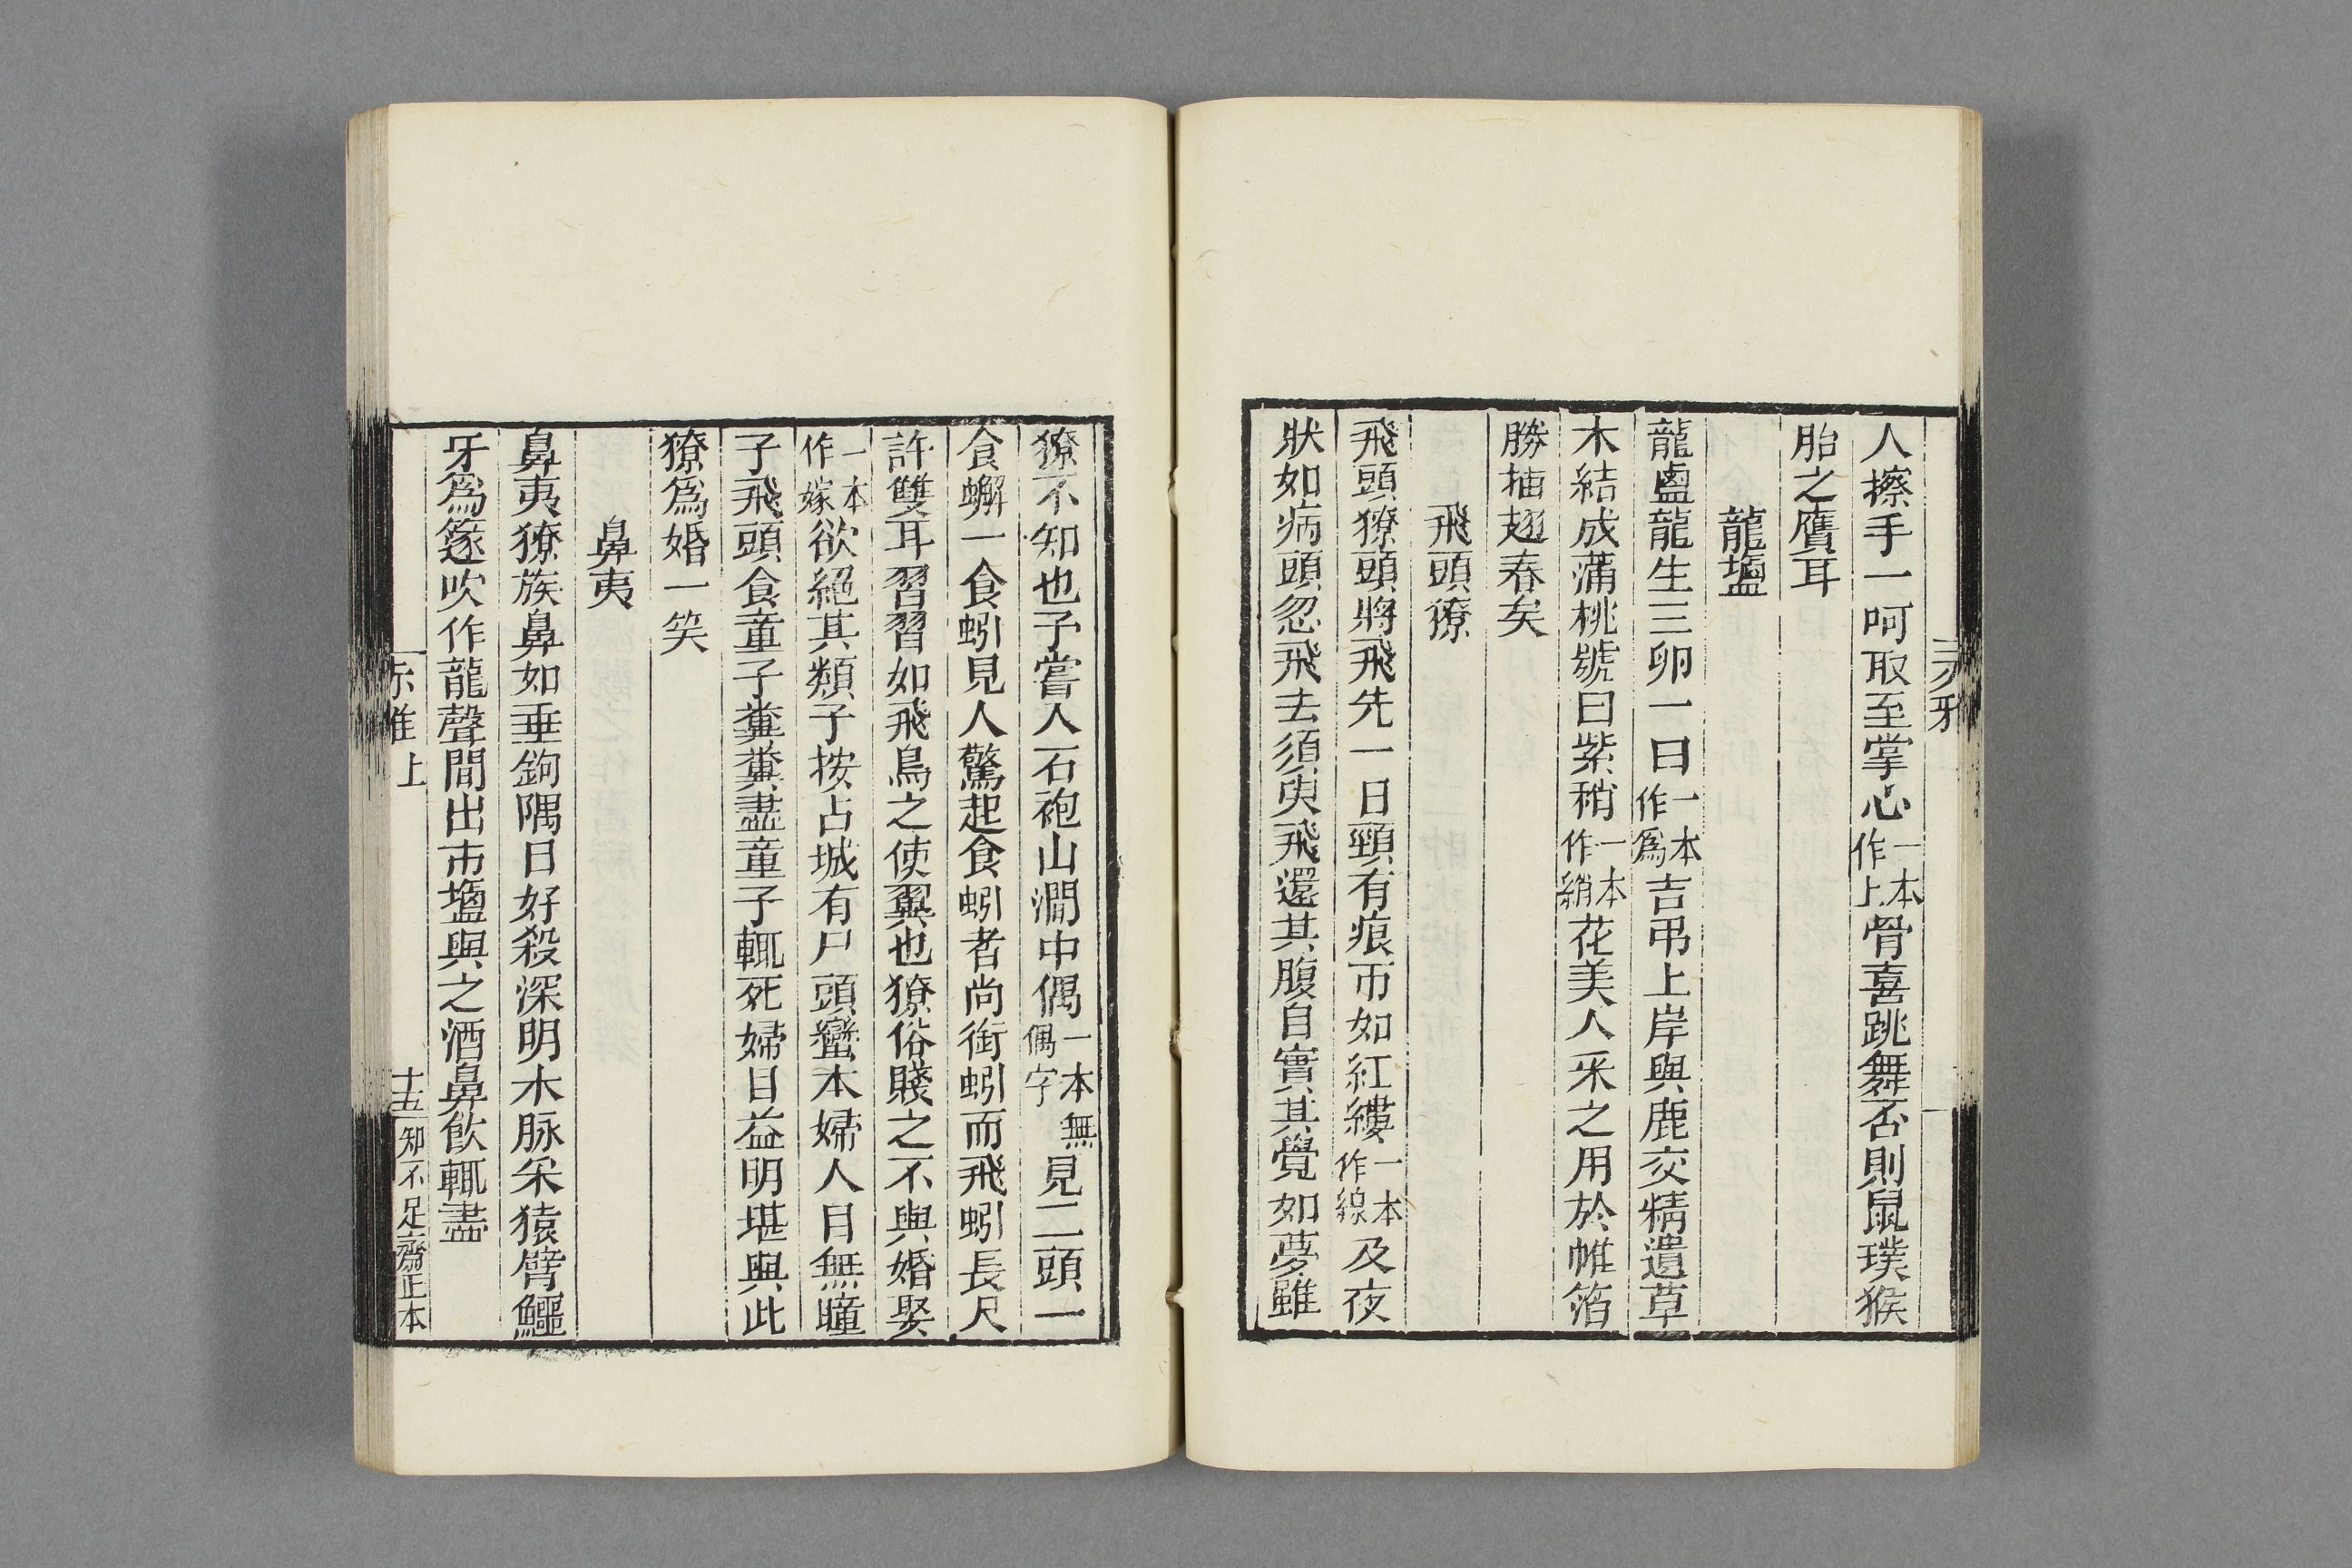 人擦手一呵取至掌心一本作上骨喜跳舞否則鼠璞猴
胎之贋耳
龍𥂁
龍鹵龍生三卵一曰一本作爲吉弔上岸與鹿交精遺草
木結成蒲桃號曰紫稍一本作綃花美人采之用於帷箔
勝搐翅春矣
飛頭獠
飛頭獠頭將飛先一日頸有痕帀如紅縷一本作線及夜
狀如病頭忽飛去須臾飛還其腹自實其覺如夢雖
獠不知也予嘗人石袍山澗中偶一本無偶字見二頭一
食蠏一食蚓見人驚起食蚓者尚銜蚓而飛蚓長尺
許雙耳習習如飛鳥之使翼也獠俗賤之不與婚娶
一本作嫁欲絕其類子按占城有尸頭蠻本婦人目無瞳
子飛頭食童子糞糞盡童子輒死婦目益明堪與此
獠爲婚一笑
鼻夷
鼻夷獠族鼻如垂鉤隅日好殺深明木脉采猿臂鱷
牙爲篴吹作龍聲間出市𥂁與之酒鼻飲輒盡
赤雅上
十五
知不足齋正本